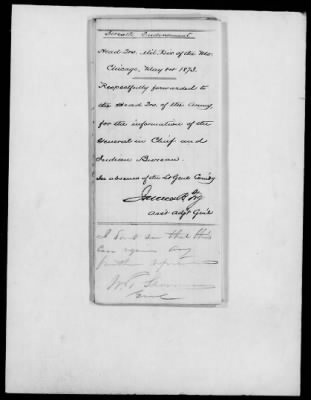 Seventh Endorsement
Head Qrs. Mil. Div. of the Mo.
Chicago, May 1st 1873.
Respectfully forwarded to
the Head Qrs. of the Army,
for the information of the
General in Chief and
Indian Bureau.
In absence of the Lt Genl Comdg
James B. Fry
Asst Adjt Genl
I don't see that this
Case requires any
further
W. T. Sherman
Genl